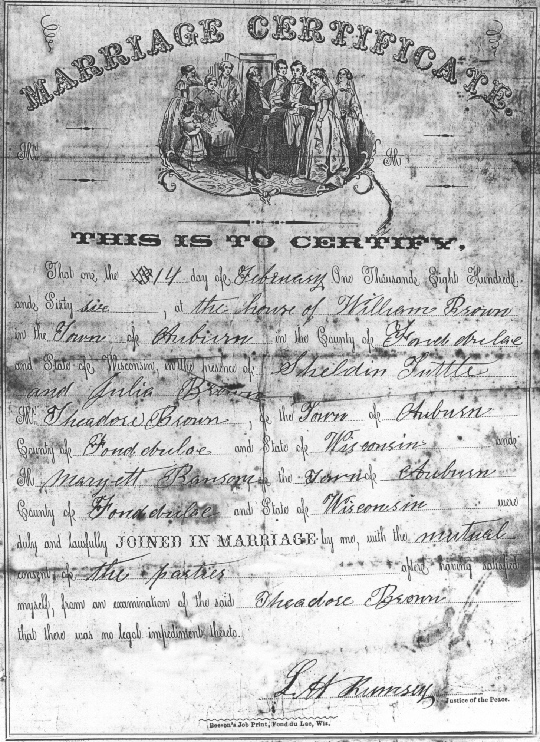 MARRIAGE CERTIFICATE.
M M
THIS IS TO CERTIFY,
That on the 14 day of February One Thousand Eight Hundred
and Sixty six, at the house of William Brown
in the Town of Auburn in the County of Fond du lac
and State of Wisconsin in the presence of Sheldin Tuttle
and Julia Brown
Mr. Theadose Brown, of the Town of Auburn
County of Fond du lac and State of Wisconsin and
M Maryett Ransom of the Town of Auburn
County of Fond du lac and State of Wisconsin were
duly and lawfully JOINED IN MARRIAGE by me, with the mutual
consent of the parties after having satisfied
myself, from an examination of the said Theadose Brown
that there was no legal impediment thereto.
L H Rumsey
Justice of the Peace.
Beeson's Job Print, Fond du Lac, Wis.